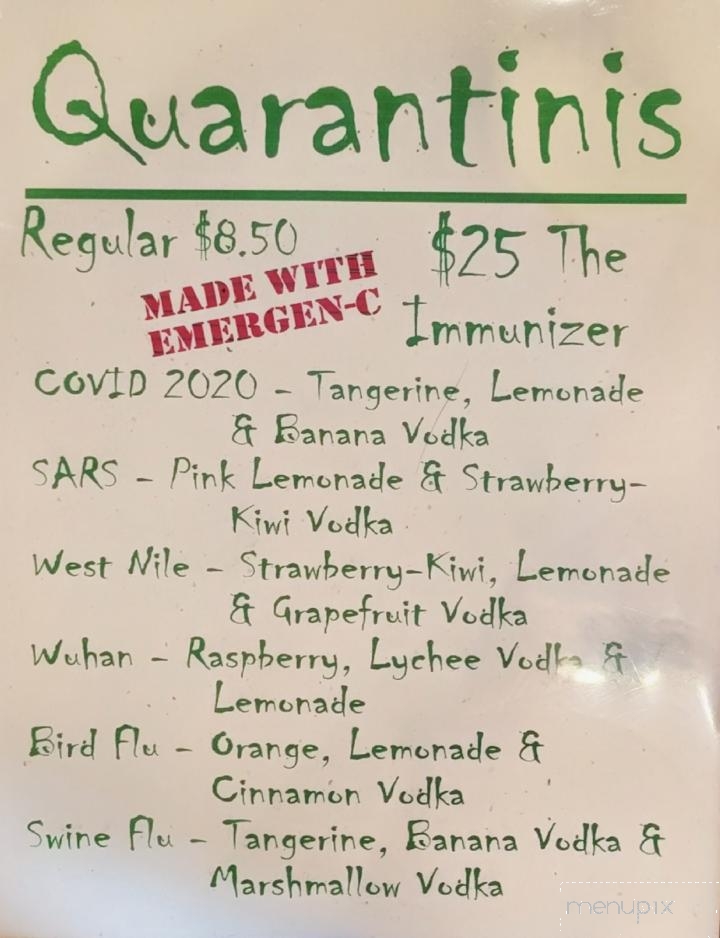 Quarantinis
Regular $8.50
MADE WITH
EMERGEN-C
$25 The
Immunizer
COVID 2020 - Tangerine, Lemonade
& Banana Vodka
SARS - Pink Lemonade & Strawberry-
Kiwi Vodka
West Nile - Strawberry-Kiwi, Lemonade
& Grapefruit Vodka
Wuhan - Raspberry, Lychee Vodka &
Lemonade
Bird Flu - Orange, Lemonade &
Cinnamon Vodka
Swine Flu - Tangerine, Banana Vodka &
Marshmallow Vodka
menupix